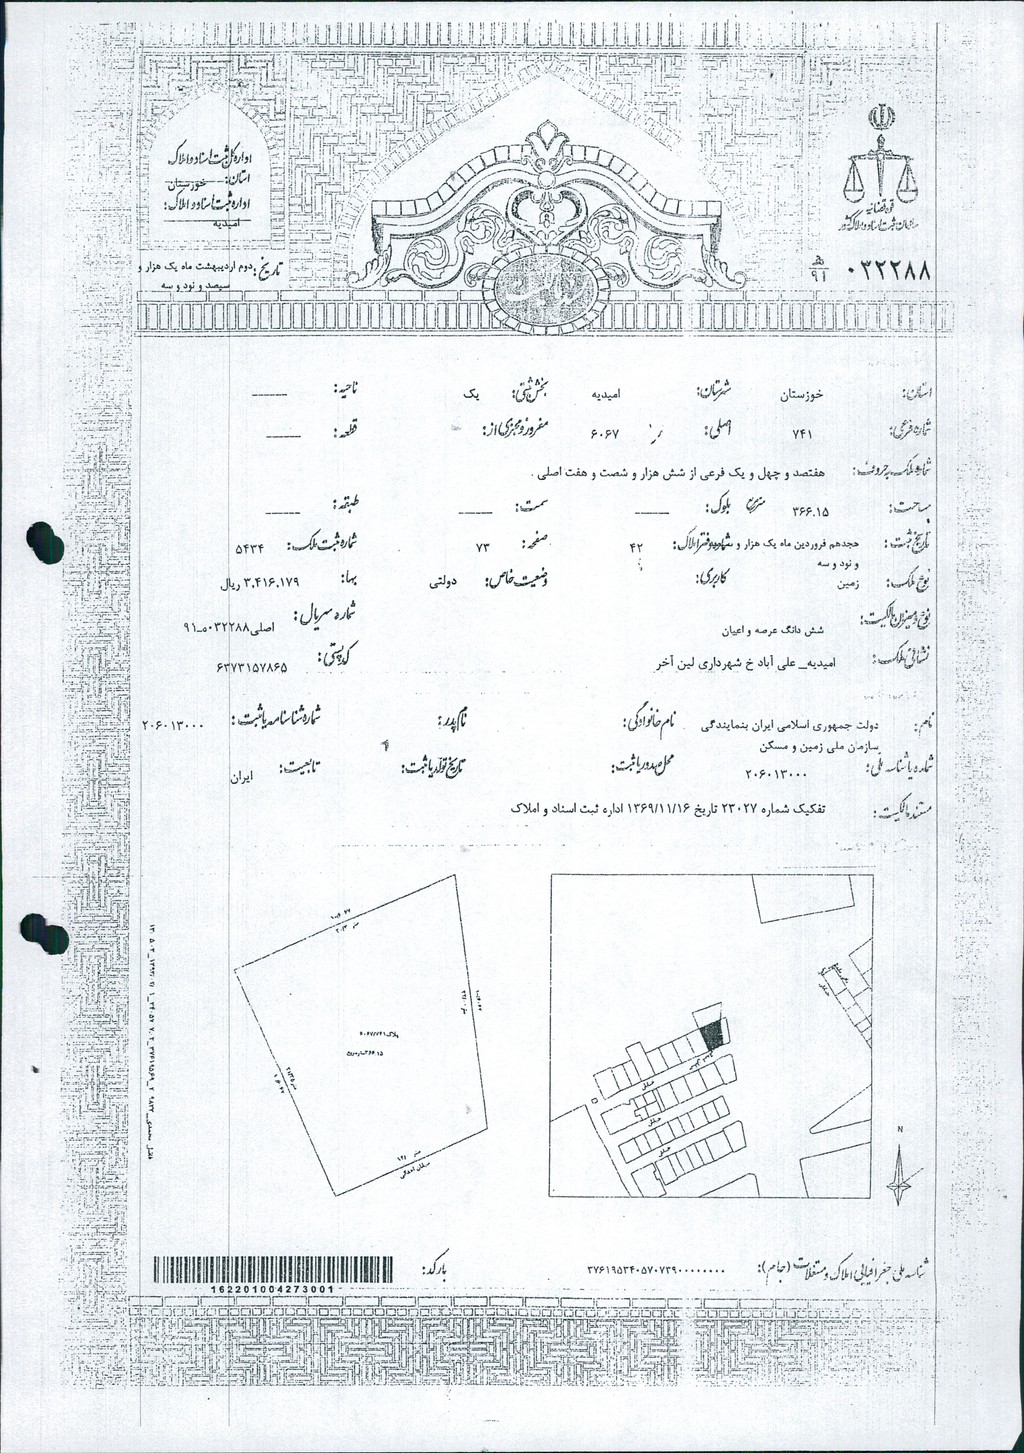 قوه قضائیه
سازمان ثبت اسناد و املاک کشور
۰۳۲۲۸۸ هـ/۹۱
اداره کل ثبت اسناد و املاک
استان: خوزستان
اداره ثبت اسناد و املاک:
امیدیه
تاریخ: دوم اردیبهشت ماه یک هزار و
سیصد و نود و سه
استان: خوزستان شهرستان: امیدیه بخش ثبتی: یک ناحیه: ____
شماره فرعی: ۷۴۱ اصلی: ۶۰۶۷ مفروز و مجزی از: قطعه: ____
شماره ملک به حروف: هفتصد و چهل و یک فرعی از شش هزار و شصت و هفت اصلی .
مساحت: ۳۶۶.۱۵ متر مربع بلوک: ____ سمت: ____ طبقه: ____
تاریخ ثبت: هجدهم فروردین ماه یک هزار و شماره دفتر املاک: ۴۲ صفحه: ۷۳ شماره ثبت ملک: ۵۴۳۴
و نود و سه
نوع ملک: زمین کاربری: وضعیت خاص: دولتی بها: ۳.۴۱۶.۱۷۹ ریال
نوع و میزان مالکیت: شش دانگ عرصه و اعیان شماره سریال: اصلی۰۳۲۲۸۸ه‍ـ۹۱
نشانی ملک: امیدیه_ علی آباد خ شهرداری لین آخر کد پستی: ۶۳۷۳۱۵۷۸۶۵
نام: دولت جمهوری اسلامی ایران بنمایندگی نام خانوادگی: نام پدر: شماره شناسنامه یا ثبت: ۲۰۶۰۱۳۰۰۰
سازمان ملی زمین و مسکن
شماره یا شناسه ملی: ۲۰۶۰۱۳۰۰۰ محل صدور یا ثبت: تاریخ تولد یا ثبت: تابعیت: ایران
مستند مالکیت: تفکیک شماره ۲۳۰۲۷ تاریخ ۱۳۶۹/۱۱/۱۶ اداره ثبت اسناد و املاک
پلاک ۶۰۶۷/۷۴۱
خیابان
خیابان
خیابان
N
شناسه ملی جغرافیایی املاک و مستغلات (جام): ۳۷۶۱۹۵۳۴۰۵۷۰۷۳۹۰۰۰۰۰۰۰۰۰
بارکد:
162201004273001